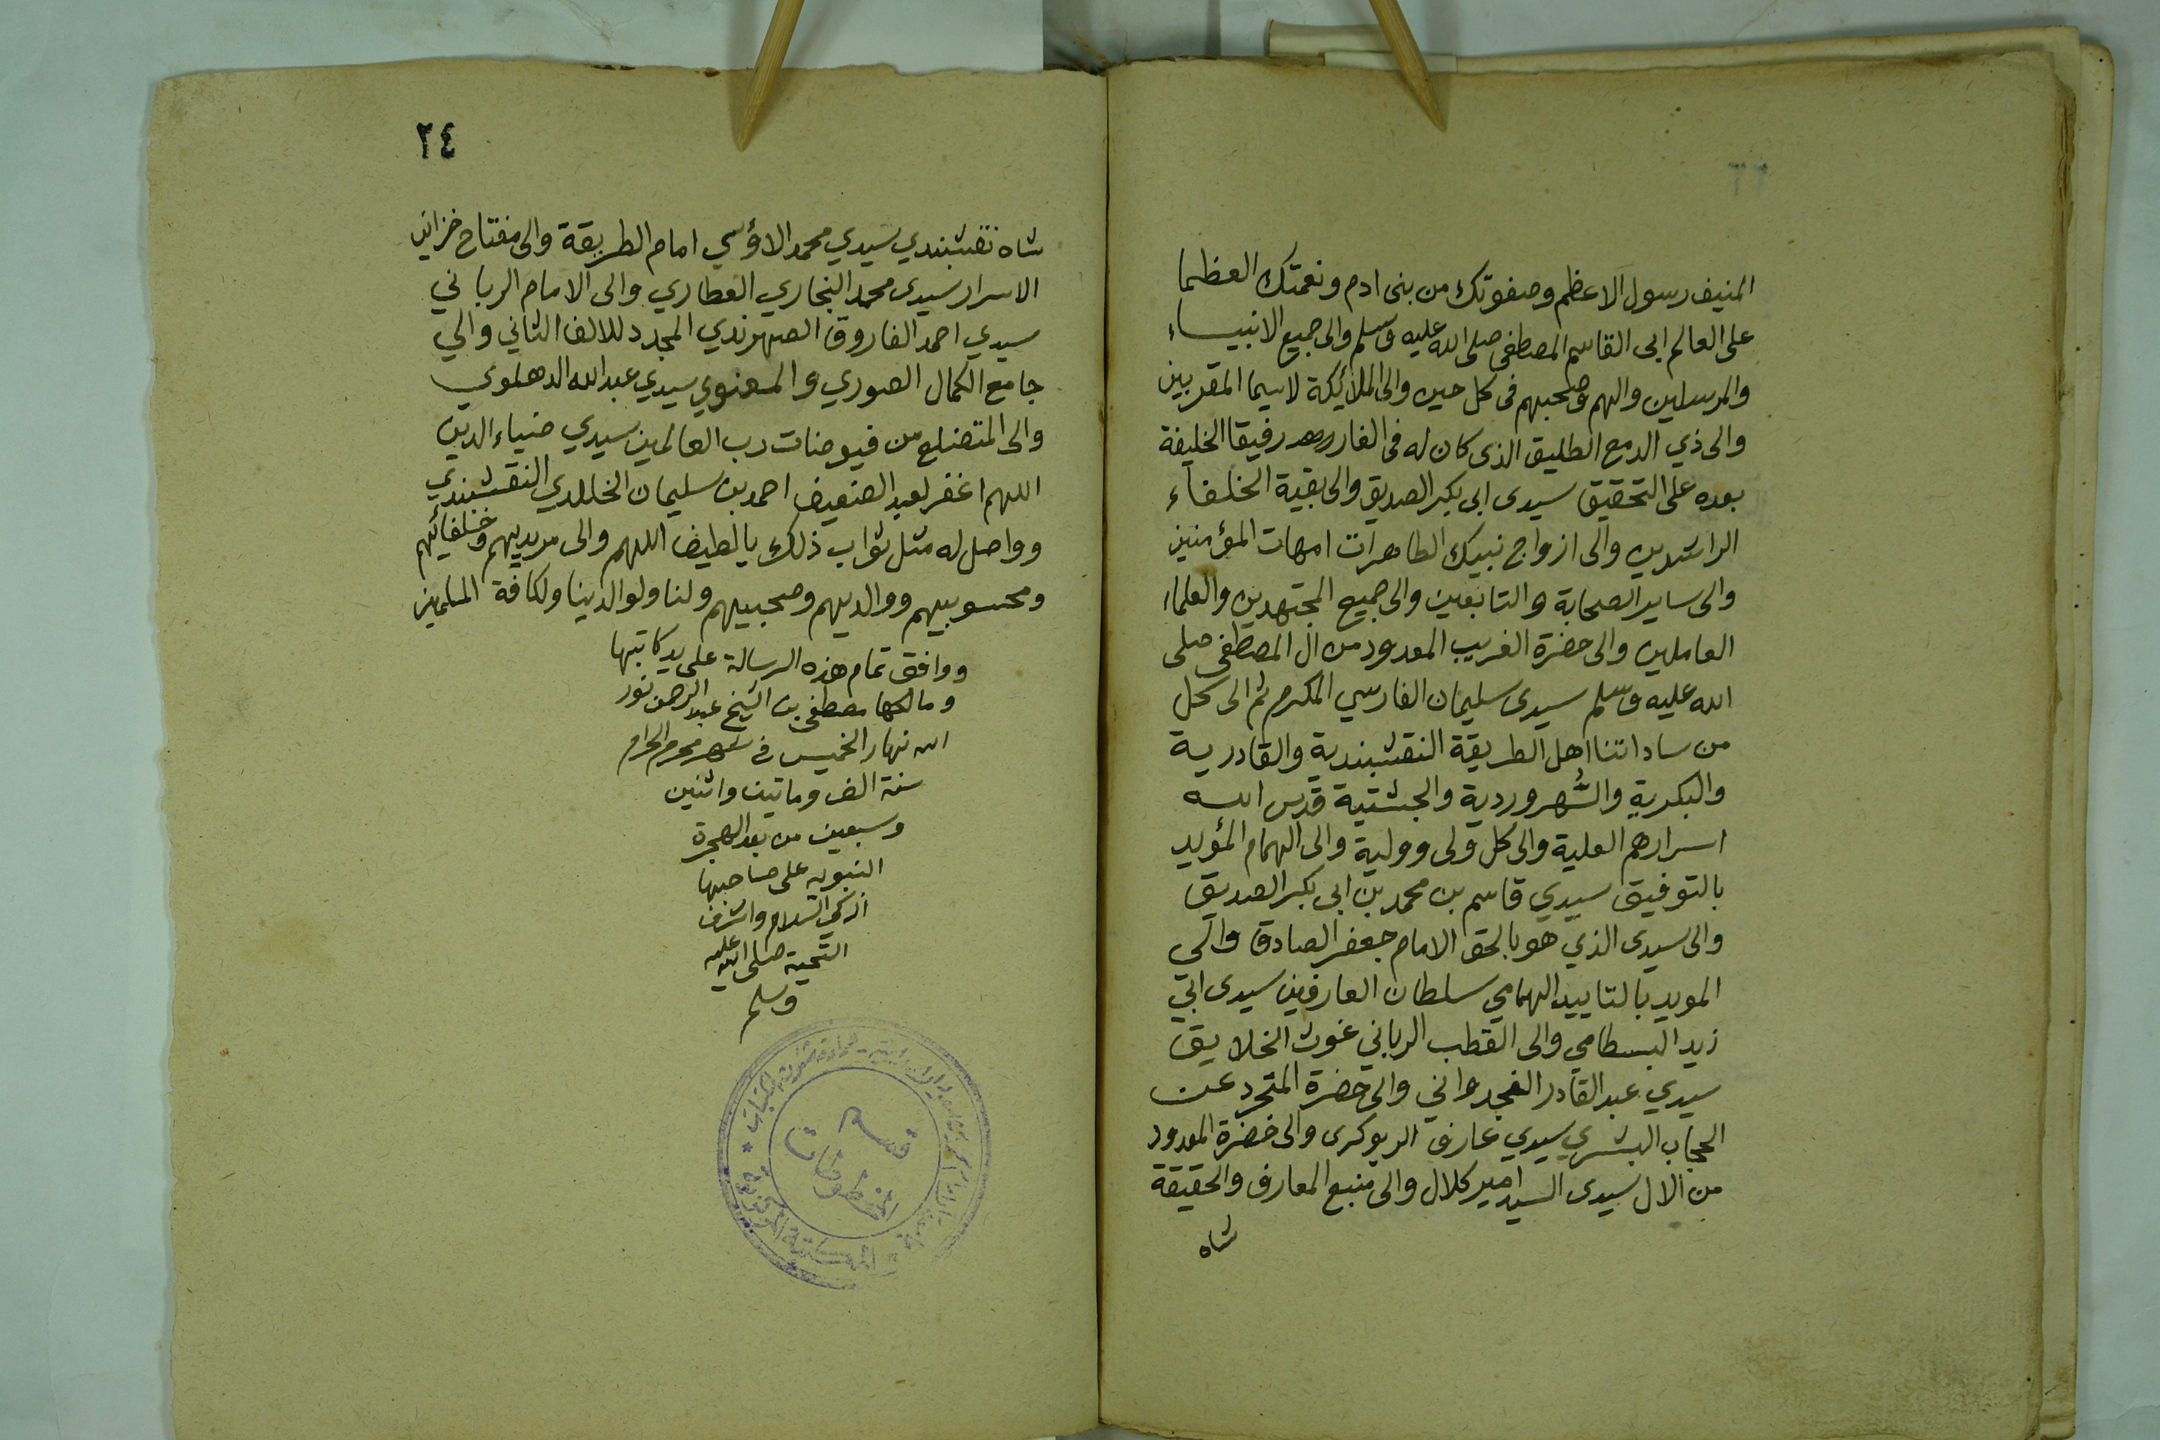 المنيف رسول الاعظم وصفوتك من بنى ادم ونعمتك العظما
على العالم ابى القاسم المصطفى صلى الله عليه وسلم والى جميع الانبيساء
والمرسلين والهم وصحبهم فى كل حين والى الملائكة لاسيما المقربين
والى ذي الدمع الطليق الذى كان له فى الغار رفيقا الخليفة
بعده على التحقيق سيدى ابى بكر الصديق والى بقية الخلفاء
الراشدين والى ازواج نبيك الطاهرات امهات المؤمنين
والى ساير الصحابة والتابعين والى جميع المجتهدين والعلماء
العاملين والى حضرة الغريب المعدود من ال المصطفى صلى
الله عليه وسلم سيدى سليمان الفارسي المكرم ثم الى كل
من ساداتنا اهل الطريقة النقشبندية والقادرية
والبكرية والسُّهروردية والجشتية قدس الله
اسرارهم العلية والى كل ولى وولية والى الهمام المؤيد
بالتوفيق سيدي قاسم بن محمد بن ابى بكر الصديق
والى سيدى الذي هو بالحق الامام جعفر الصادق والى
المويد بالتاييد الهمامي سلطان العارفين سيدى ابي
زيد البسطامي والى القطب الرباني غوث الخلايق
سيدي عبد القادر الغجدواني والى حضرة المتجرد عن
الحجاب البشري سيدي عارف الريوكرى والى حضرة المعدود
من الال سيدى السيد امير كلال والى منبع المعارف والحقيقة
شاه
٢٤
شاه نقشبندي سيدي محمد الاؤسي امام الطريقة والى مفتاح خزاين
الاسرار سيدى محمد البخاري العطاري والى الامام الرباني
سيدي احمد الفاروق الصهرندي المجدد للالف الثاني والي
جامع الكمال الصوري والمعنوي سيدي عبد الله الدهلوي
والى المتضلع من فيوضات رب العالمين سيدي ضياء الدين
اللهم اغفر لعبد الضعيف احمد بن سليمان الخالدي النقشبندي
وواصل له مثل ثواب ذلك يا لطيف اللهم والى مريديهم وخلفائهم
ومحسوبيهم ووالديهم وصحبيهم ولنا ولوالدينا ولكافة المسلمين
ووافق تمام هذه الرسالة على يد كاتبها
ومالكها مصطفى بن الشيخ عبد الرحمن نور
الله نهار الخميس في شهر محرم الحرام
سنة الف وماتين واثنين
وسبعين من بعد الهجرة
النبويه على صاحبها
ازكى السلام واشرف
التحية صلى الله عليه
وسلم
قسم
المخطوطات
المكتبة المركزية